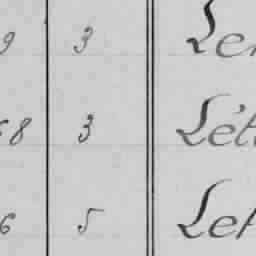 9 3 Le
58 3 Lét
6 5 Let